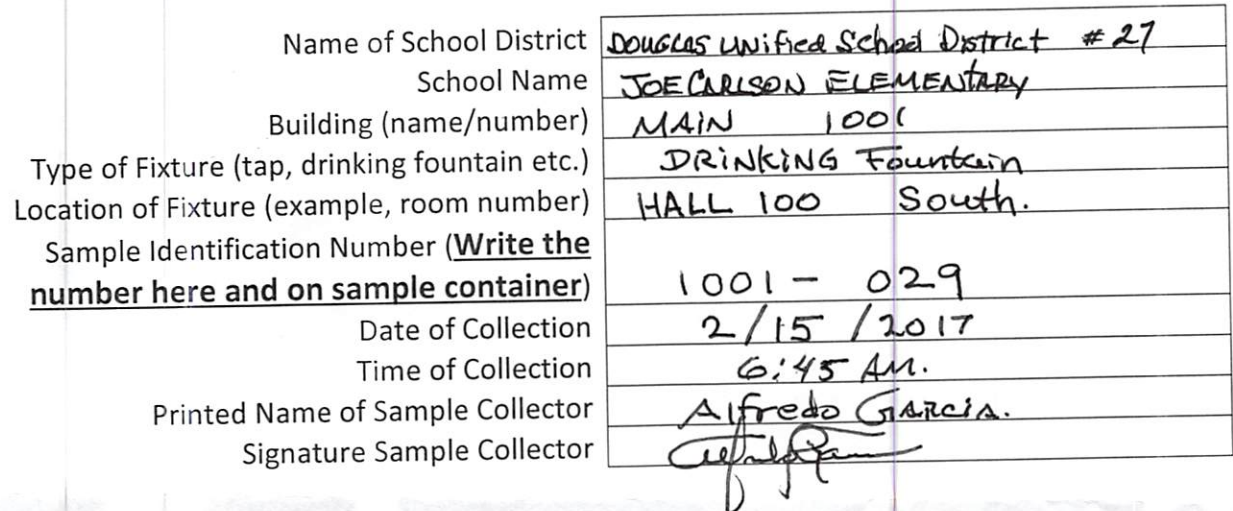 Name of School District DOUGLAS UNified School District # 27
School Name JOE CARLSON ELEMENTARY
Building (name/number) MAIN 1001
Type of Fixture (tap, drinking fountain etc.) DRINKING Fountain
Location of Fixture (example, room number) HALL 100 South.
Sample Identification Number (Write the
number here and on sample container) 1001 - 029
Date of Collection 2/15/2017
Time of Collection 6:45 AM.
Printed Name of Sample Collector Alfredo GARCIA.
Signature Sample Collector